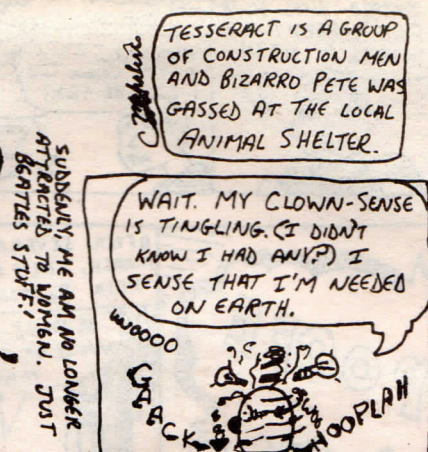 TESSERACT IS A GROUP
OF CONSTRUCTION MEN
AND BIZARRO PETE WAS
GASSED AT THE LOCAL
ANIMAL SHELTER.
SUDDENLY ME AM NO LONGER
ATTRACTED TO WOMEN. JUST
BEATLES STUFF.
WAIT. MY CLOWN-SENSE
IS TINGLING. (I DIDN'T
KNOW I HAD ANY?) I
SENSE THAT I'M NEEDED
ON EARTH.
WOOOO
CRACK
HOOPLAH